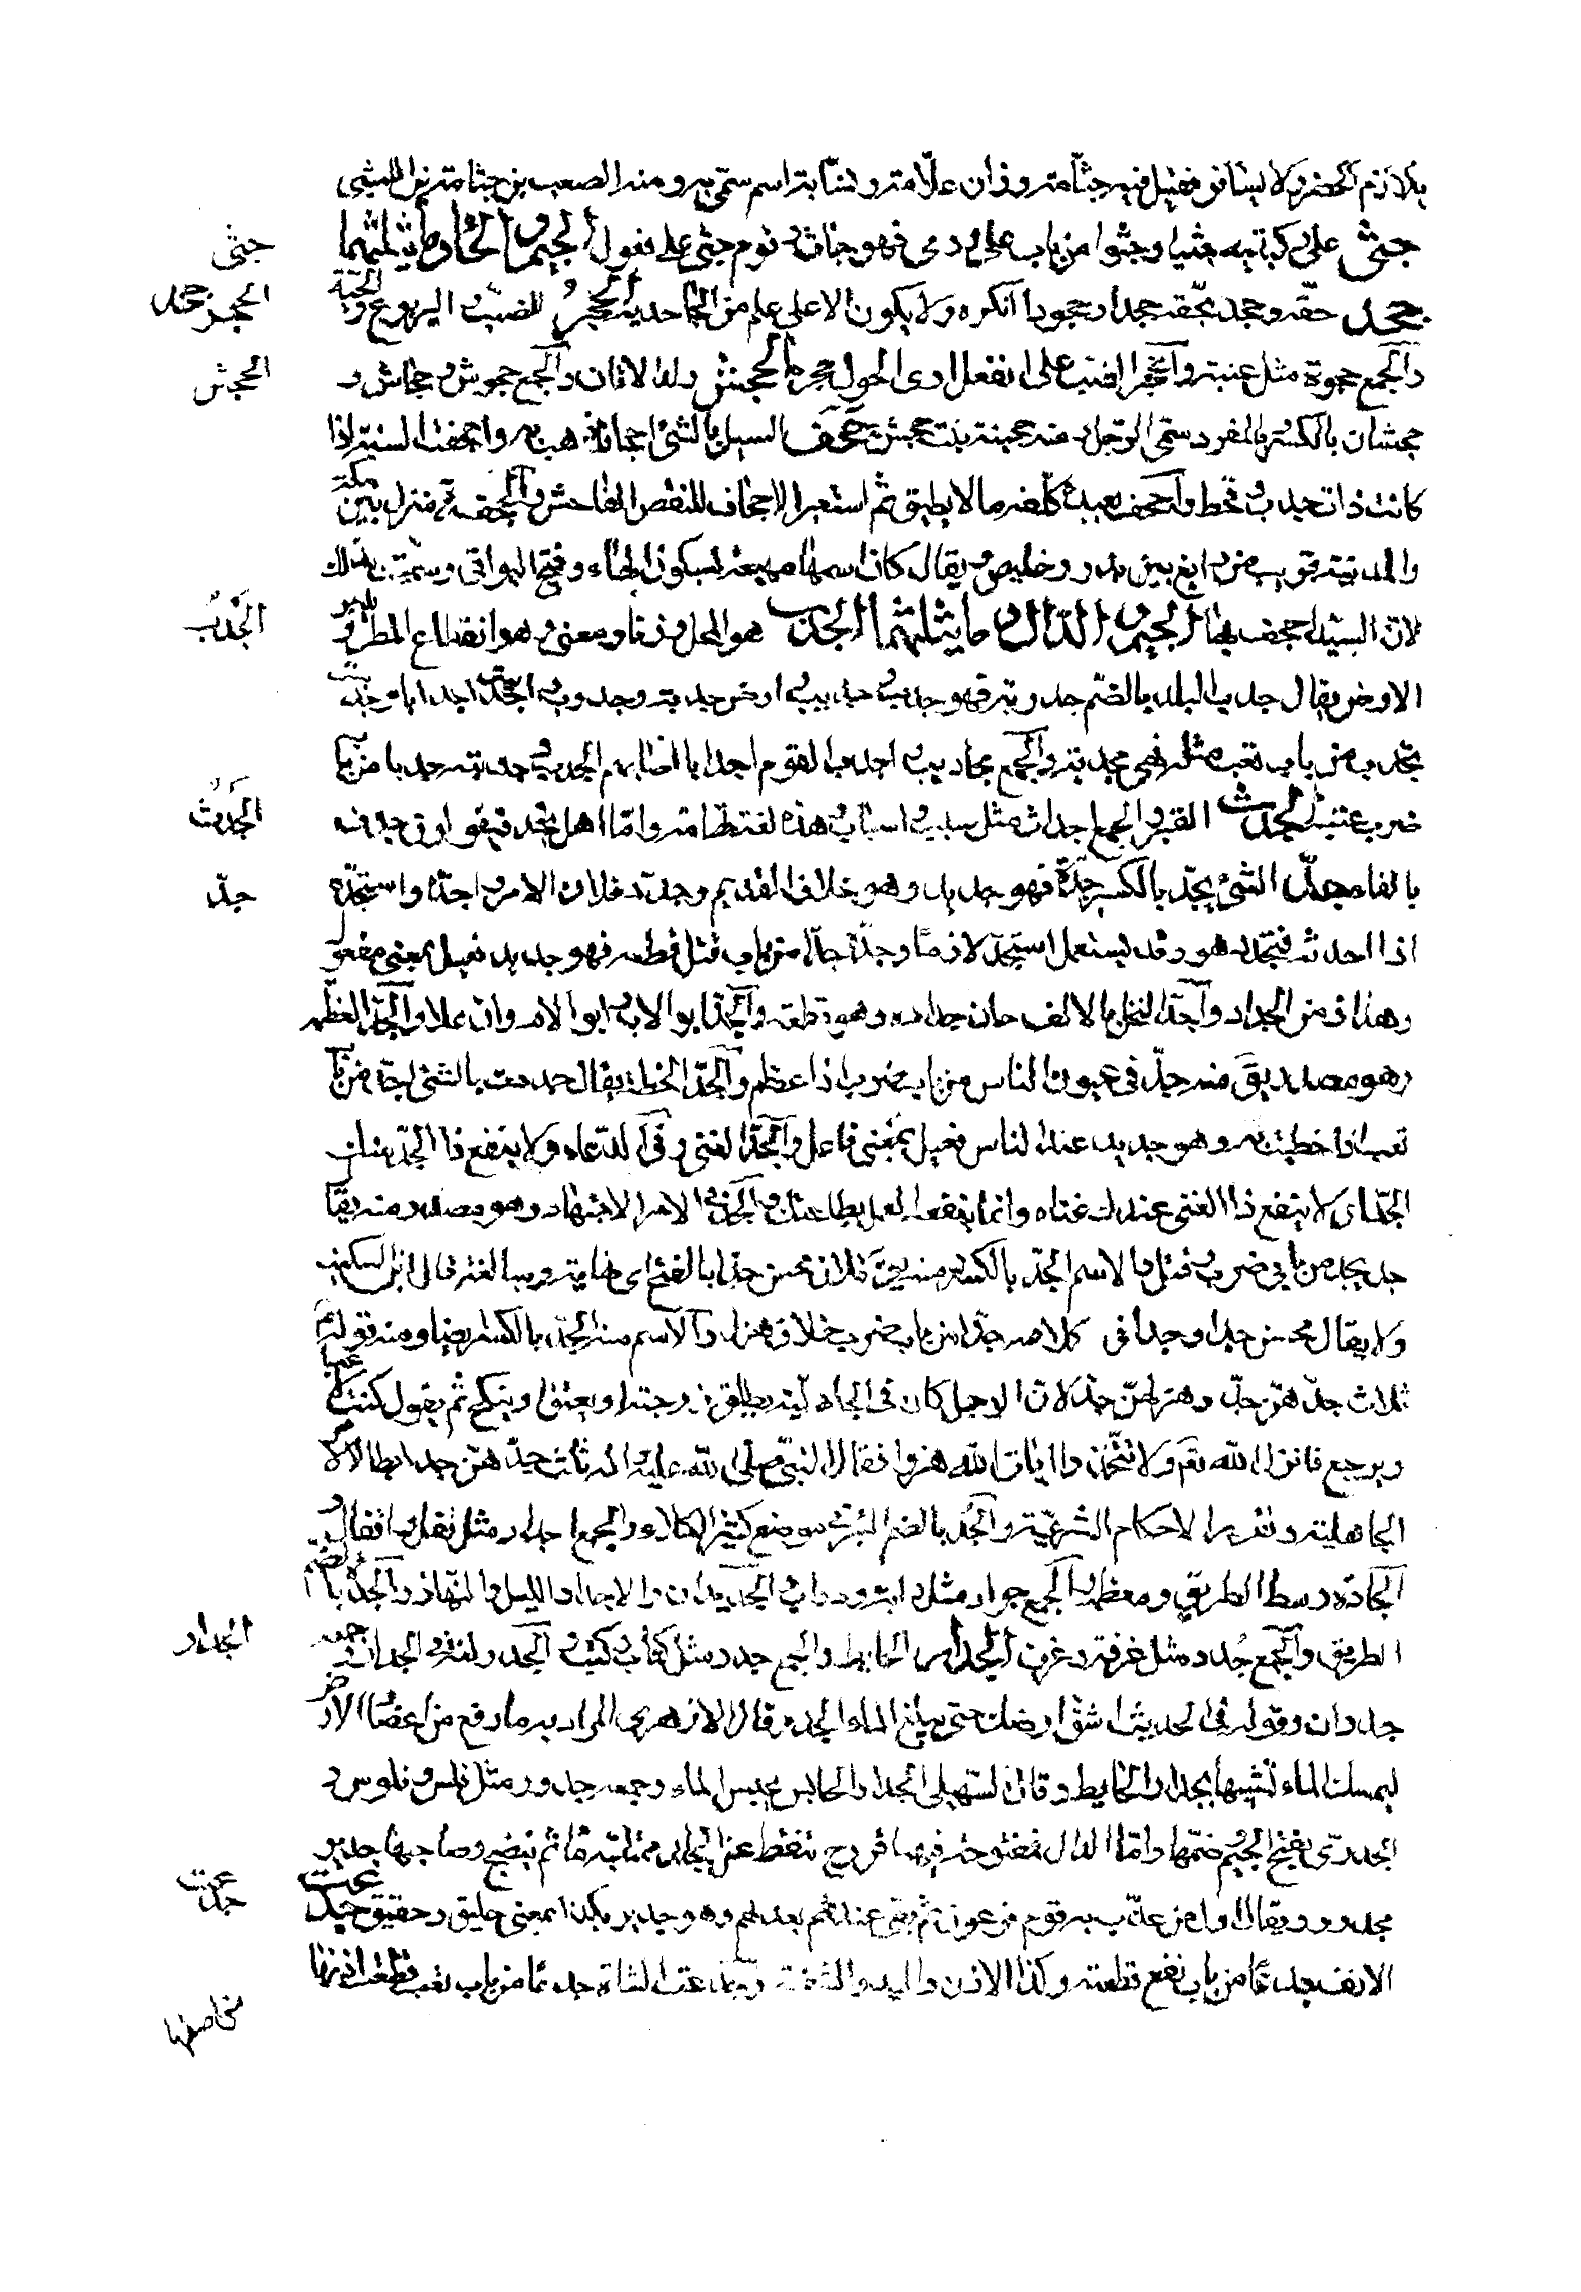 يلازم الحضر ولا يسافر فقيل فيه جثّامة وزان علّامة ونسّابة اسم سمّي به ومنه الصعب بن جثامة الليثي
جثى على ركبتيه جثيا وجثوا من باب علا ورمى فهو جاث وقوم جثي على فعول الجيم والحاء وما يثلثهما
جثى
جحد حقّه وبحقّه جحدا وجحودا انكره ولا يكون الا على علم من الجاحد به الجحر للضبّ واليربوع والحيّة
الجحر جحد
والجمع جحرة مثل عنبة وانجحر الضب على انفعل اوى الى جحره الجحش ولد الاتان والجمع جحوش وجحاش و
الجحش
جحشان بالكسر وبالمفرد سمّي الرجل ومنه حمنة بنت جحش جحف السيل بالشيء اجحافا ذهب به واجحفت السنة اذا
كانت ذات جدب وقحط واجحف بعبده كلّفه ما لا يطيق ثم استعير الاجحاف للنقص الفاحش والجحفة منزل بين مكة
والمدينة قريب من رابغ بين بدر وخليص ويقال كان اسمها مهيعة بسكون الهاء وفتح البواقي وسمّيت بذلك
لانّ السيل اجحف بها الجيم والدال وما يثلثهما الجدب هو المحل وزنا ومعنى وهو انقطاع المطر ويبس
الجَدْبُ
الارض يقال جدب البلد بالضم جدوبة فهو جدب وجديب وارض جدبة وجدوب واجدبت اجدابا وجدبت
تجدب من باب تعب مثله فهي مجدبة والجمع مجاديب واجدب القوم اجدابا اصابهم الجدب وجدبته جدبا من باب
ضرب عبته الجدث القبر والجمع اجداث مثل سبب واسباب هذه لغة تهامة وامّا اهل نجد فيقولون جدف
الجَدَثُ
بالفاء جدّ الشيء يجدّ بالكسر جدّة فهو جديد وهو خلاف القديم وجدّد فلان الامر واجدّه واستجدّه
جدّ
اذا احدثه فتجدّد هو وقد يستعمل استجدّ لازما وجدّه جدّا من باب قتل قطعه فهو جديد فعيل بمعنى مفعول
وهذا زمن الجداد واجدّ النخل بالالف حان جداده وهو قطعه والجدّ ابو الاب وابو الام وان علا والجدّ العظمة
وهو مصدر يقَ منه جدّ في عيون الناس من باب ضرب اذا عظم والجدّ الحظ يقال جددت بالشيء اجدّ من باب
تعب اذا حظيت به وهو جديد عند الناس فعيل بمعنى فاعل والجدّ الغنى وفي الدعاء ولا ينفع ذا الجدّ منك
الجدّ اي لا ينفع ذا الغنى عندك غناه وانما ينفعه العمل بطاعتك والجدّ في الامر الاجتهاد وهو مصدر منه يقا
جد يجد من بابي ضرب وقتل والاسم الجدّ بالكسر ومنه يقَ فلان محسن جدّا بالفتح اي نهاية ومبالغة قال ابن السكيت
ولا يقال محسن جدا وجدّ في كلامه جدّا من باب ضرب خلاف هزل والاسم منه الجدّ بالكسر ايضا ومنه قوله عَم
ثلاث جدّهنّ جدّ وهزلهنّ جدّ لانّ الرجل كان في الجاهلية يطلق زوجته او يعتق او ينكح ثم يقول كنت لاعبا
ويرجع فانزل الله تعَ ولا تتّخذوا ايات الله هزوا فقال النبيّ صلّى الله عليه واله ثلاث جدّهنّ جد ابطالا لامر
الجاهلية وتقريرا لاحكام الشرعيّة والجدّ بالضم البئر في موضع كثير الكلاء والجمع اجداد مثل قفل واقفال و
الجادّة وسط الطريق ومعظمه والجمع جوادّ مثل دابة ودواب والجديدان والاجدان الليل والنهار والجدّة بالضمّ
الطريق والجمع جُدد مثل غرفة وغرف الجدار الحايط والجمع جدر مثل كتاب وكتب والجدر لغة في الجدار وجمعه
الجدار
جدران وقوله في الحديث اسق ارضك حتى يبلغ الماء الجدر قال الازهري المراد به ما رفع من اعضاد الارض
ليمسك الماء تشبيها بجدار الحايط وقال السهيلي الجدر الحابس يحبس الماء وجمعه جدور مثل فلس وفلوس و
الجدري بفتح الجيم وضمّها وامّا الدال فمفتوحة فيهما قروح تنفط عن الجلد ممتلئة ماء ثم تنفتح وصاحبها جدير
مجدور ويقال اول من عذّب به قوم فرعون ثم بقي عندهم بعدهم وهو جدير بكذا بمعنى خليق وحقيق جدعت
جدعت
الانف جدعا من باب نفع قطعته وكذا الاذن واليد والشفة وجدعت الشاة جدعا من باب تعب قطعت اذنها
من اصلها